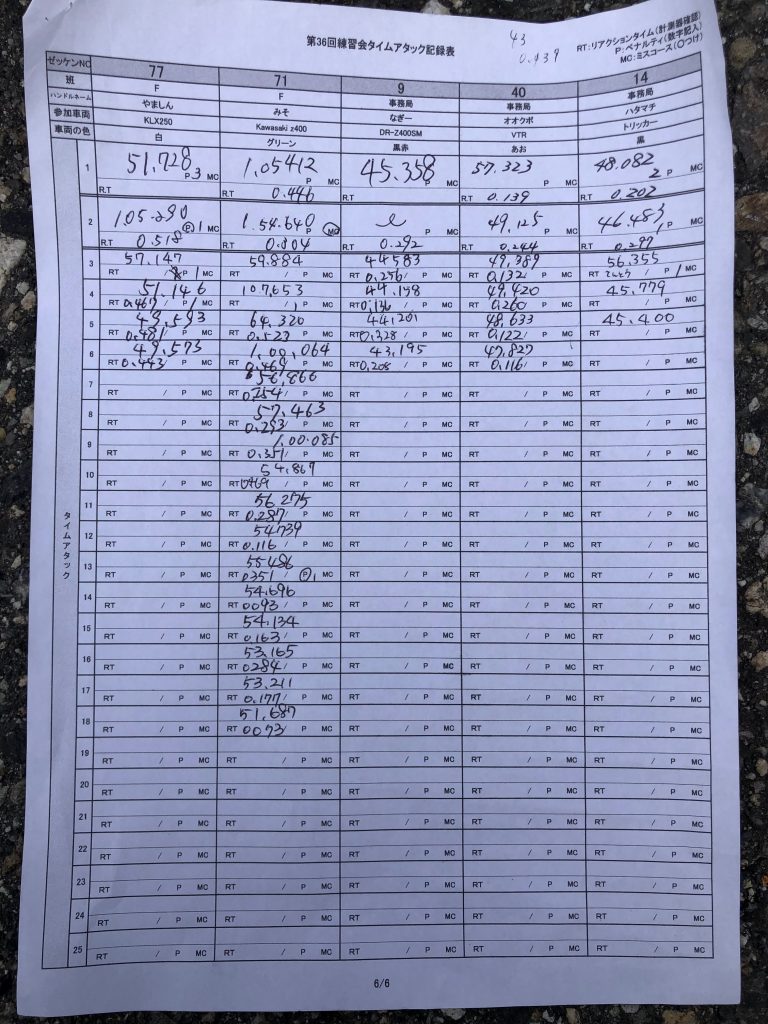 43
0.439
第36回練習会タイムアタック記録表
RT:リアクションタイム(計測器確認)
P:ペナルティ(数字記入)
MC:ミスコース(○つけ)
ゼッケンNO 77 71 9 40 14
班 F F 事務局 事務局 事務局
ハンドルネーム やましん みそ なぎー オオクボ ハタマチ
参加車両 KLX250 Kawasaki z400 DR-Z400SM VTR トリッカー
車両の色 白 グリーン 黒赤 あお 黒
タイムアタック
1 51.728 1.05412 45.358 57.323 48.082
P 3 MC P MC P MC P MC 2 P MC
R.T R.T 0.446 R.T R.T 0.139 R.T 0.202
2 1.05.290 1.54.640 49.125 46.483
P 1 MC P MC P MC P MC 1 P MC
RT 0.518 RT 0.804 RT 0.292 RT 0.244 RT 0.297
3 57.147 59.884 44583 49.389 56.355
RT / P 1 MC RT / P MC RT 0.256 / P MC RT 0.132 / P MC RT てんとう / P 1 MC
4 51.146 107.653 44.138 49.420 45.779
RT 0.467 / P 1 MC RT / 1 P MC RT 0.136 / P MC RT 0.260 / P MC RT / P MC
5 49.593 64.320 44.201 48.633 45.400
RT 0.481 / P MC RT 0.523 / P MC RT 0.328 / P MC RT 0.122 / P MC RT / P MC
6 49.573 1.00.064 43.195 47.827
RT 0.443 / P MC RT 0.469 / P MC RT 0.208 / P MC RT 0.116 / P MC RT / P MC
7 56.866
RT / P MC RT 0.254 / P MC RT / P MC RT / P MC RT / P MC
8 57.463
RT / P MC RT 0.293 / P MC RT / P MC RT / P MC RT / P MC
9 1.00.085
RT / P MC RT 0.351 / P MC RT / P MC RT / P MC RT / P MC
10 54.867
RT / P MC RT 0469 / P MC RT / P MC RT / P MC RT / P MC
11 56.275
RT / P MC RT 0.287 / P MC RT / P MC RT / P MC RT / P MC
12 54739
RT / P MC RT 0.116 / P MC RT / P MC RT / P MC RT / P MC
13 55486
RT / P MC RT 0351 / P 1 MC RT / P MC RT / P MC RT / P MC
14 54.696
RT / P MC RT 0093 / P MC RT / P MC RT / P MC RT / P MC
15 54.134
RT / P MC RT 0.163 / P MC RT / P MC RT / P MC RT / P MC
16 53.165
RT / P MC RT 0284 / P MC RT / P MC RT / P MC RT / P MC
17 53.211
RT / P MC RT 0.177 / P MC RT / P MC RT / P MC RT / P MC
18 51.687
RT / P MC RT 0073 / P MC RT / P MC RT / P MC RT / P MC
19
RT / P MC RT / P MC RT / P MC RT / P MC RT / P MC
20
RT / P MC RT / P MC RT / P MC RT / P MC RT / P MC
21
RT / P MC RT / P MC RT / P MC RT / P MC RT / P MC
22
RT / P MC RT / P MC RT / P MC RT / P MC RT / P MC
23
RT / P MC RT / P MC RT / P MC RT / P MC RT / P MC
24
RT / P MC RT / P MC RT / P MC RT / P MC RT / P MC
25
RT / P MC RT / P MC RT / P MC RT / P MC RT / P MC
6/6